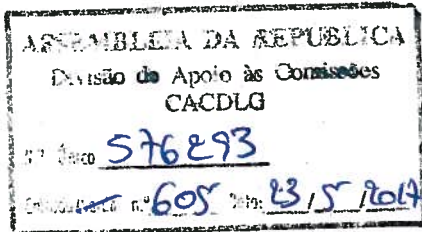 ASSEMBLEIA DA REPÚBLICA
Divisão de Apoio às Comissões
CACDLG
N.º Único 576293
n.º 605 Data: 23/5/2017